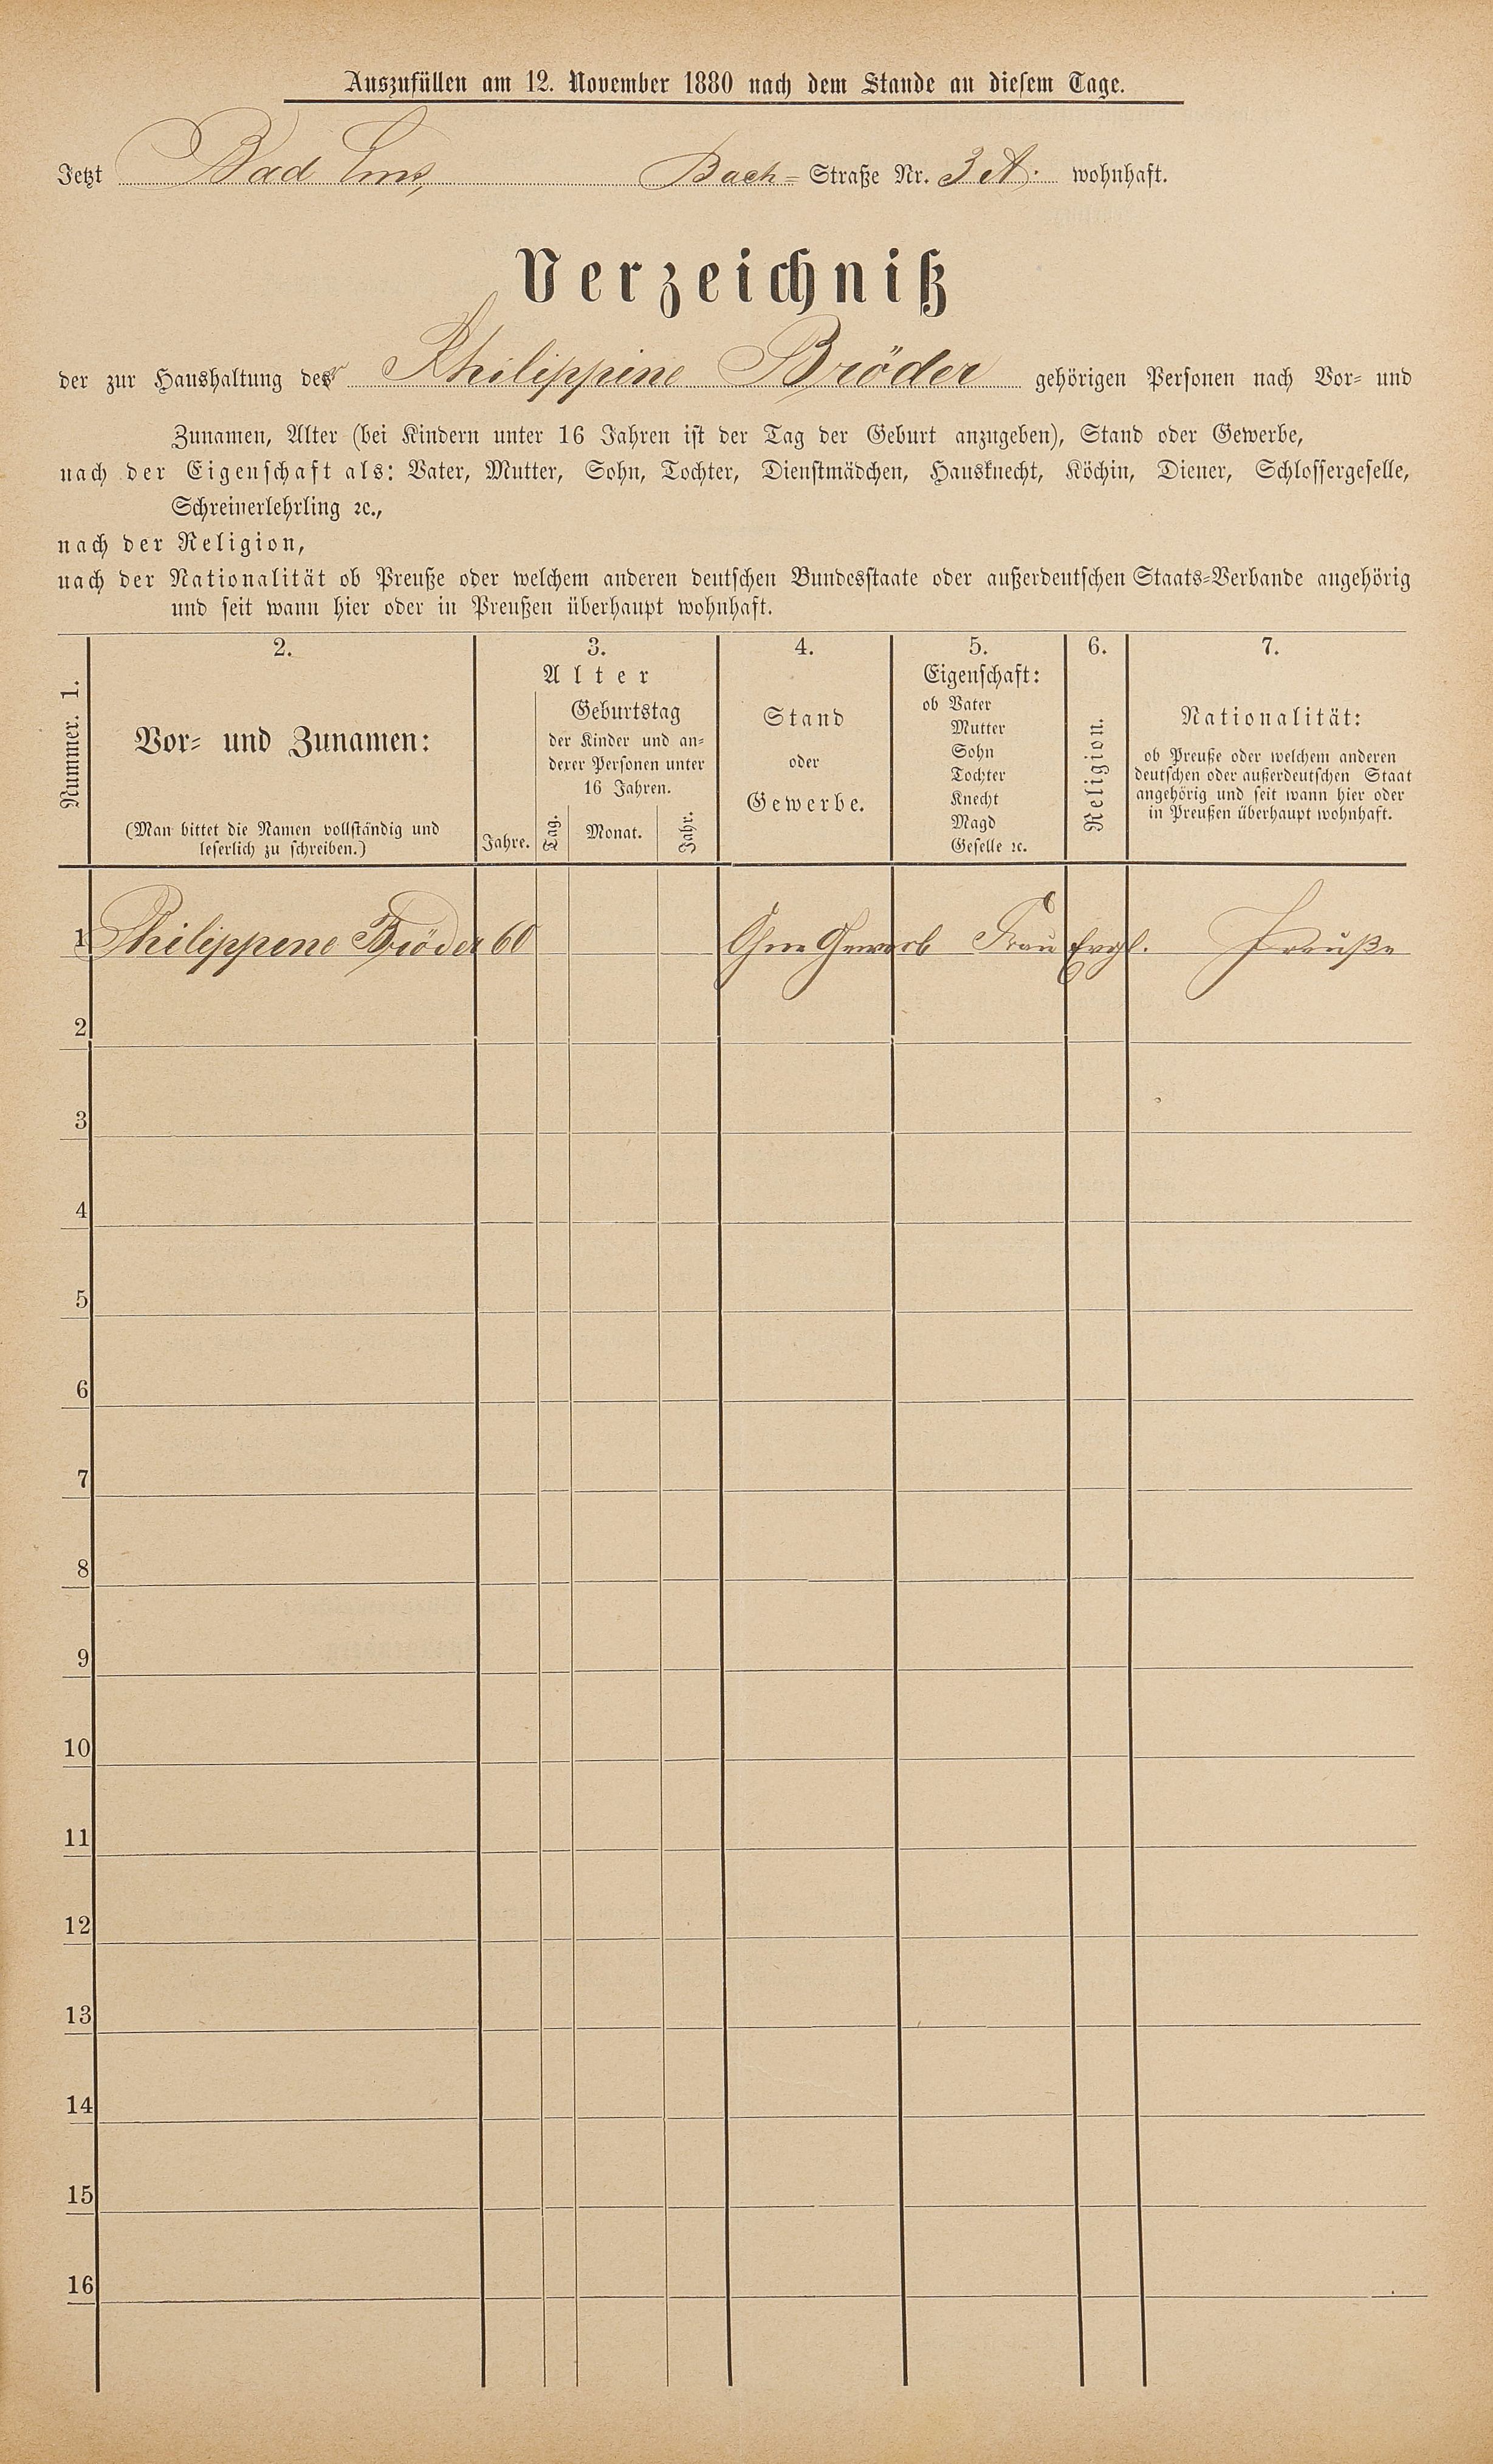 Auszufüllen am 12. November 1880 nach dem Stande an diesem Tage.
Jetzt Bad Ems, Bach- Straße Nr. 3 A. wohnhaft.
Verzeichniß
der zur Haushaltung der Philippine Bröder gehörigen Personen nach Vor- und
Zunamen, Alter (bei Kindern unter 16 Jahren ist der Tag der Geburt anzugeben), Stand oder Gewerbe,
nach der Eigenschaft als: Vater, Mutter, Sohn, Tochter, Dienstmädchen, Hausknecht, Köchin, Diener, Schlossergeselle,
Schreinerlehrling ꝛc.,
nach der Religion,
nach der Nationalität ob Preuße oder welchem anderen deutschen Bundesstaate oder außerdeutschen Staats-Verbande angehörig
und seit wann hier oder in Preußen überhaupt wohnhaft.
Nummer. 1.
2.
Vor- und Zunamen:
(Man bittet die Namen vollständig und
leserlich zu schreiben.)
3.
Alter
Jahre.
Geburtstag
der Kinder und an-
derer Personen unter
16 Jahren.
Tag.
Monat.
Jahr.
4.
Stand
oder
Gewerbe.
5.
Eigenschaft:
ob Vater
Mutter
Sohn
Tochter
Knecht
Magd
Geselle ꝛc.
6.
Religion.
7.
Nationalität:
ob Preuße oder welchem anderen
deutschen oder außerdeutschen Staat
angehörig und seit wann hier oder
in Preußen überhaupt wohnhaft.
1 Philippine Bröder 60 Ohne Gewerb Frau Evgl. Preuße
2
3
4
5
6
7
8
9
10
11
12
13
14
15
16